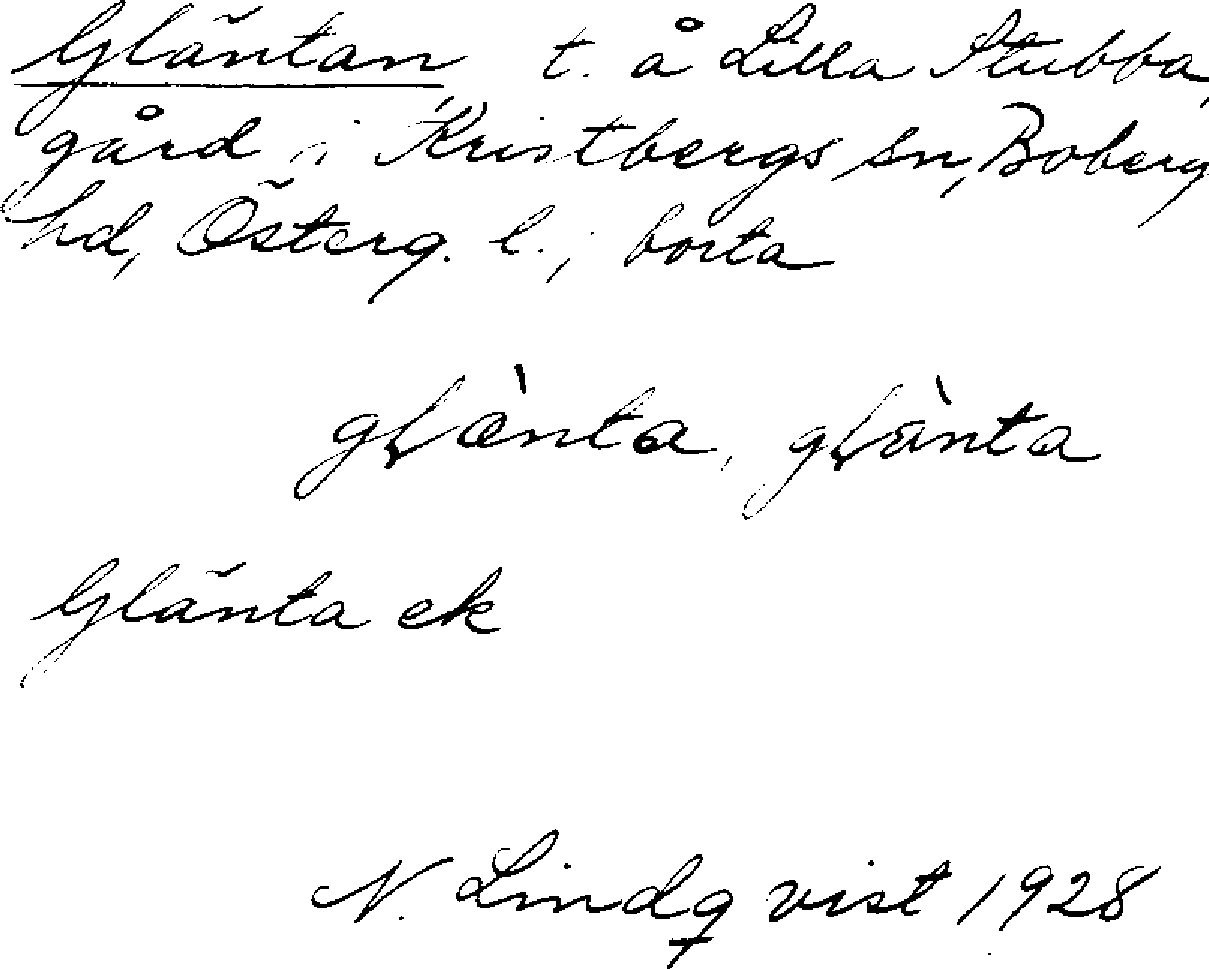 Gläntan t. å Lilla Stubba,
gård i Kristbergs sn, Boberg
hd, Österg. l.; borta
glæ̀nta, glànta
Glänta ek
N. Lindqvist 1928